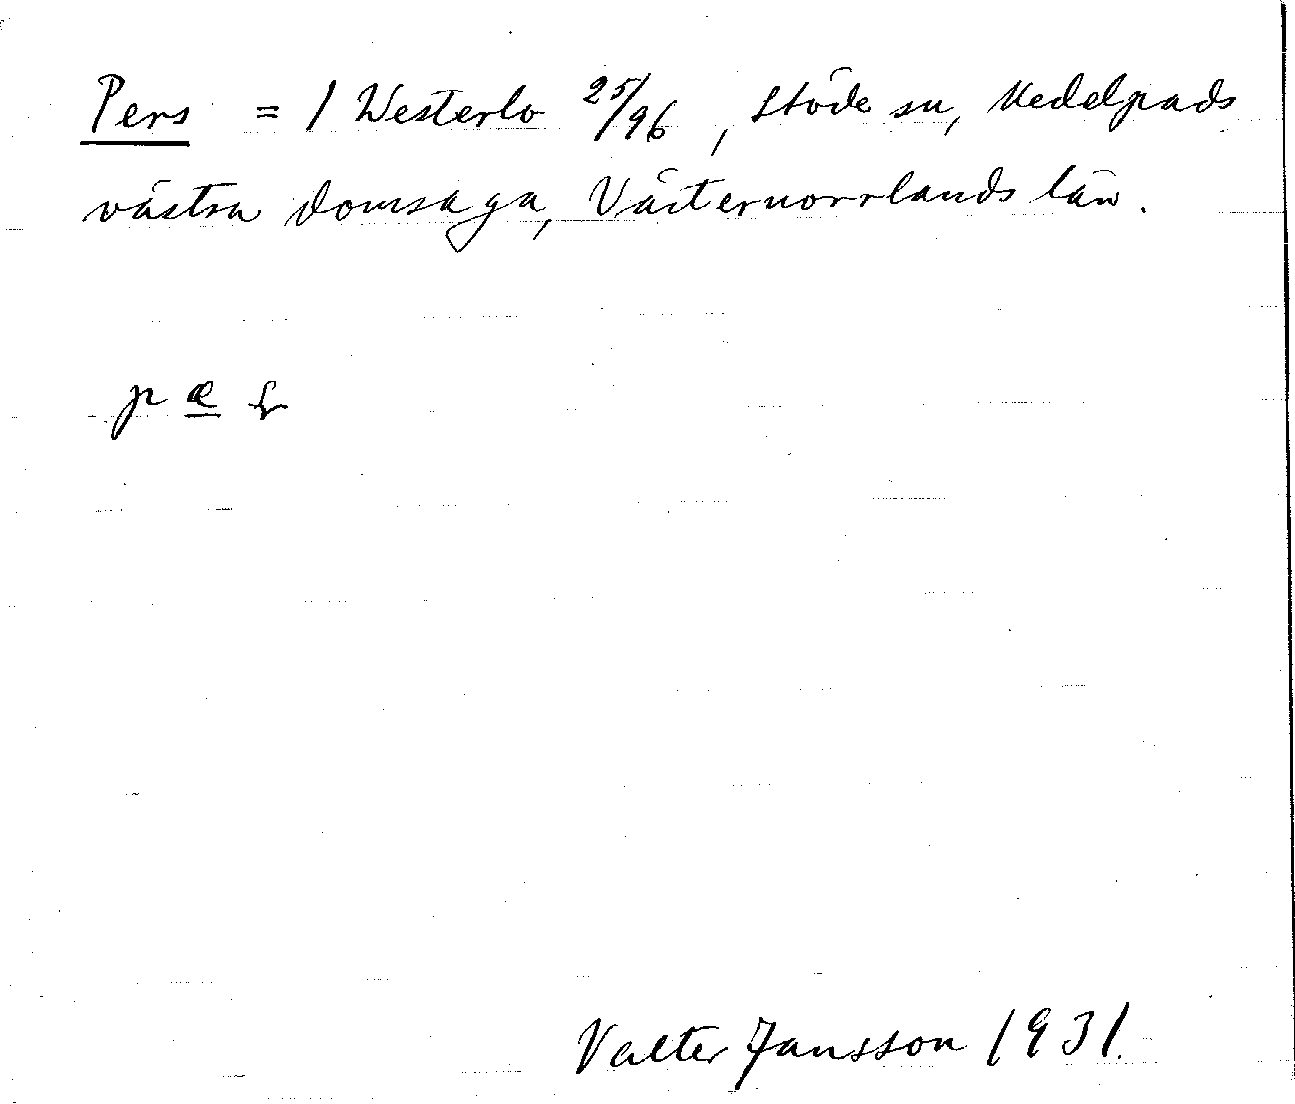 Pers = 1 Westerlo 25/96, Stöde sn, Medelpads
västra domsaga, Västernorrlands län.
p æ
Valter Jansson 1931.